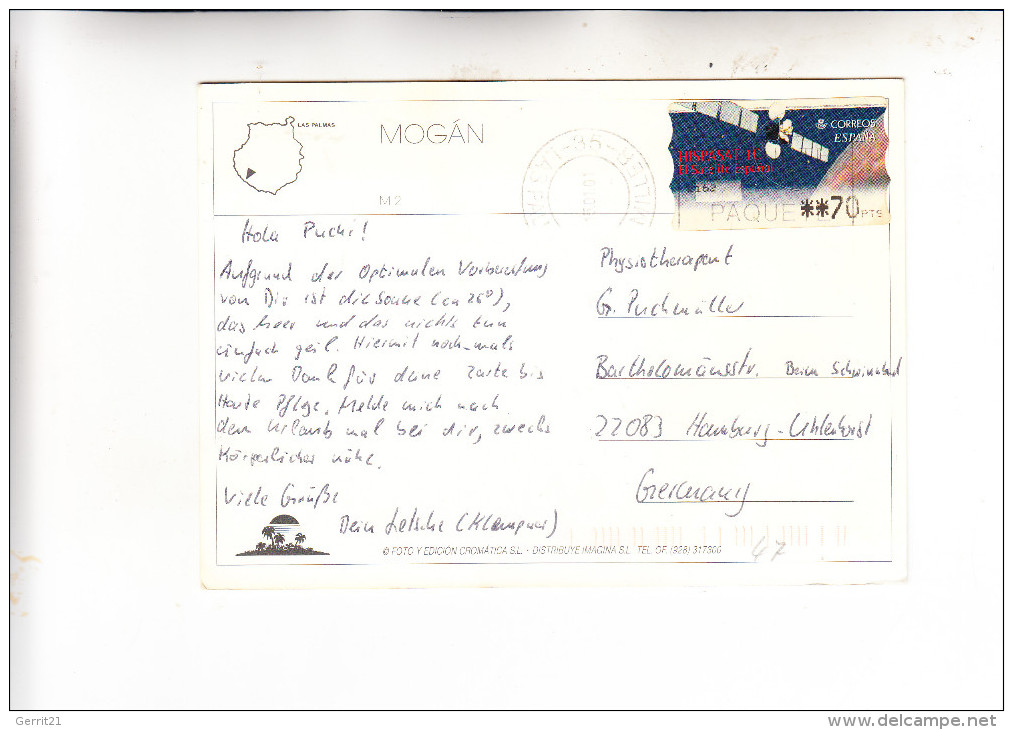 LAS PALMAS
MOGÁN
M 2
CORREOS
ESPAÑA
HISPASAT 1C
PAQUE
**70 PTS
Hola Puchi!
Aufgrund der Optimalen Vorbereitung
von Dir ist die Sonne (ca 26°),
das Meer und das nichts tun
einfach geil. Hiermit noch-mals
vielen Dank für deine zarte bis
Harte Pflege. Melde mich nach
dem Urlaub mal bei dir, zwecks
Körperlicher nähe.
Viele Grüße
Dein (Klempner)
Physiotherapeut
G. Puchmüller
Bartholomäusstr. Beim Schwimmbad
22083 Hamburg-Uhlenhorst
Germany
© FOTO Y EDICIÓN CROMÁTICA S.L. - DISTRIBUYE IMAGINA S.L. TEL. OF. (928) 317300
47
Gerrit21
www.delcampe.net